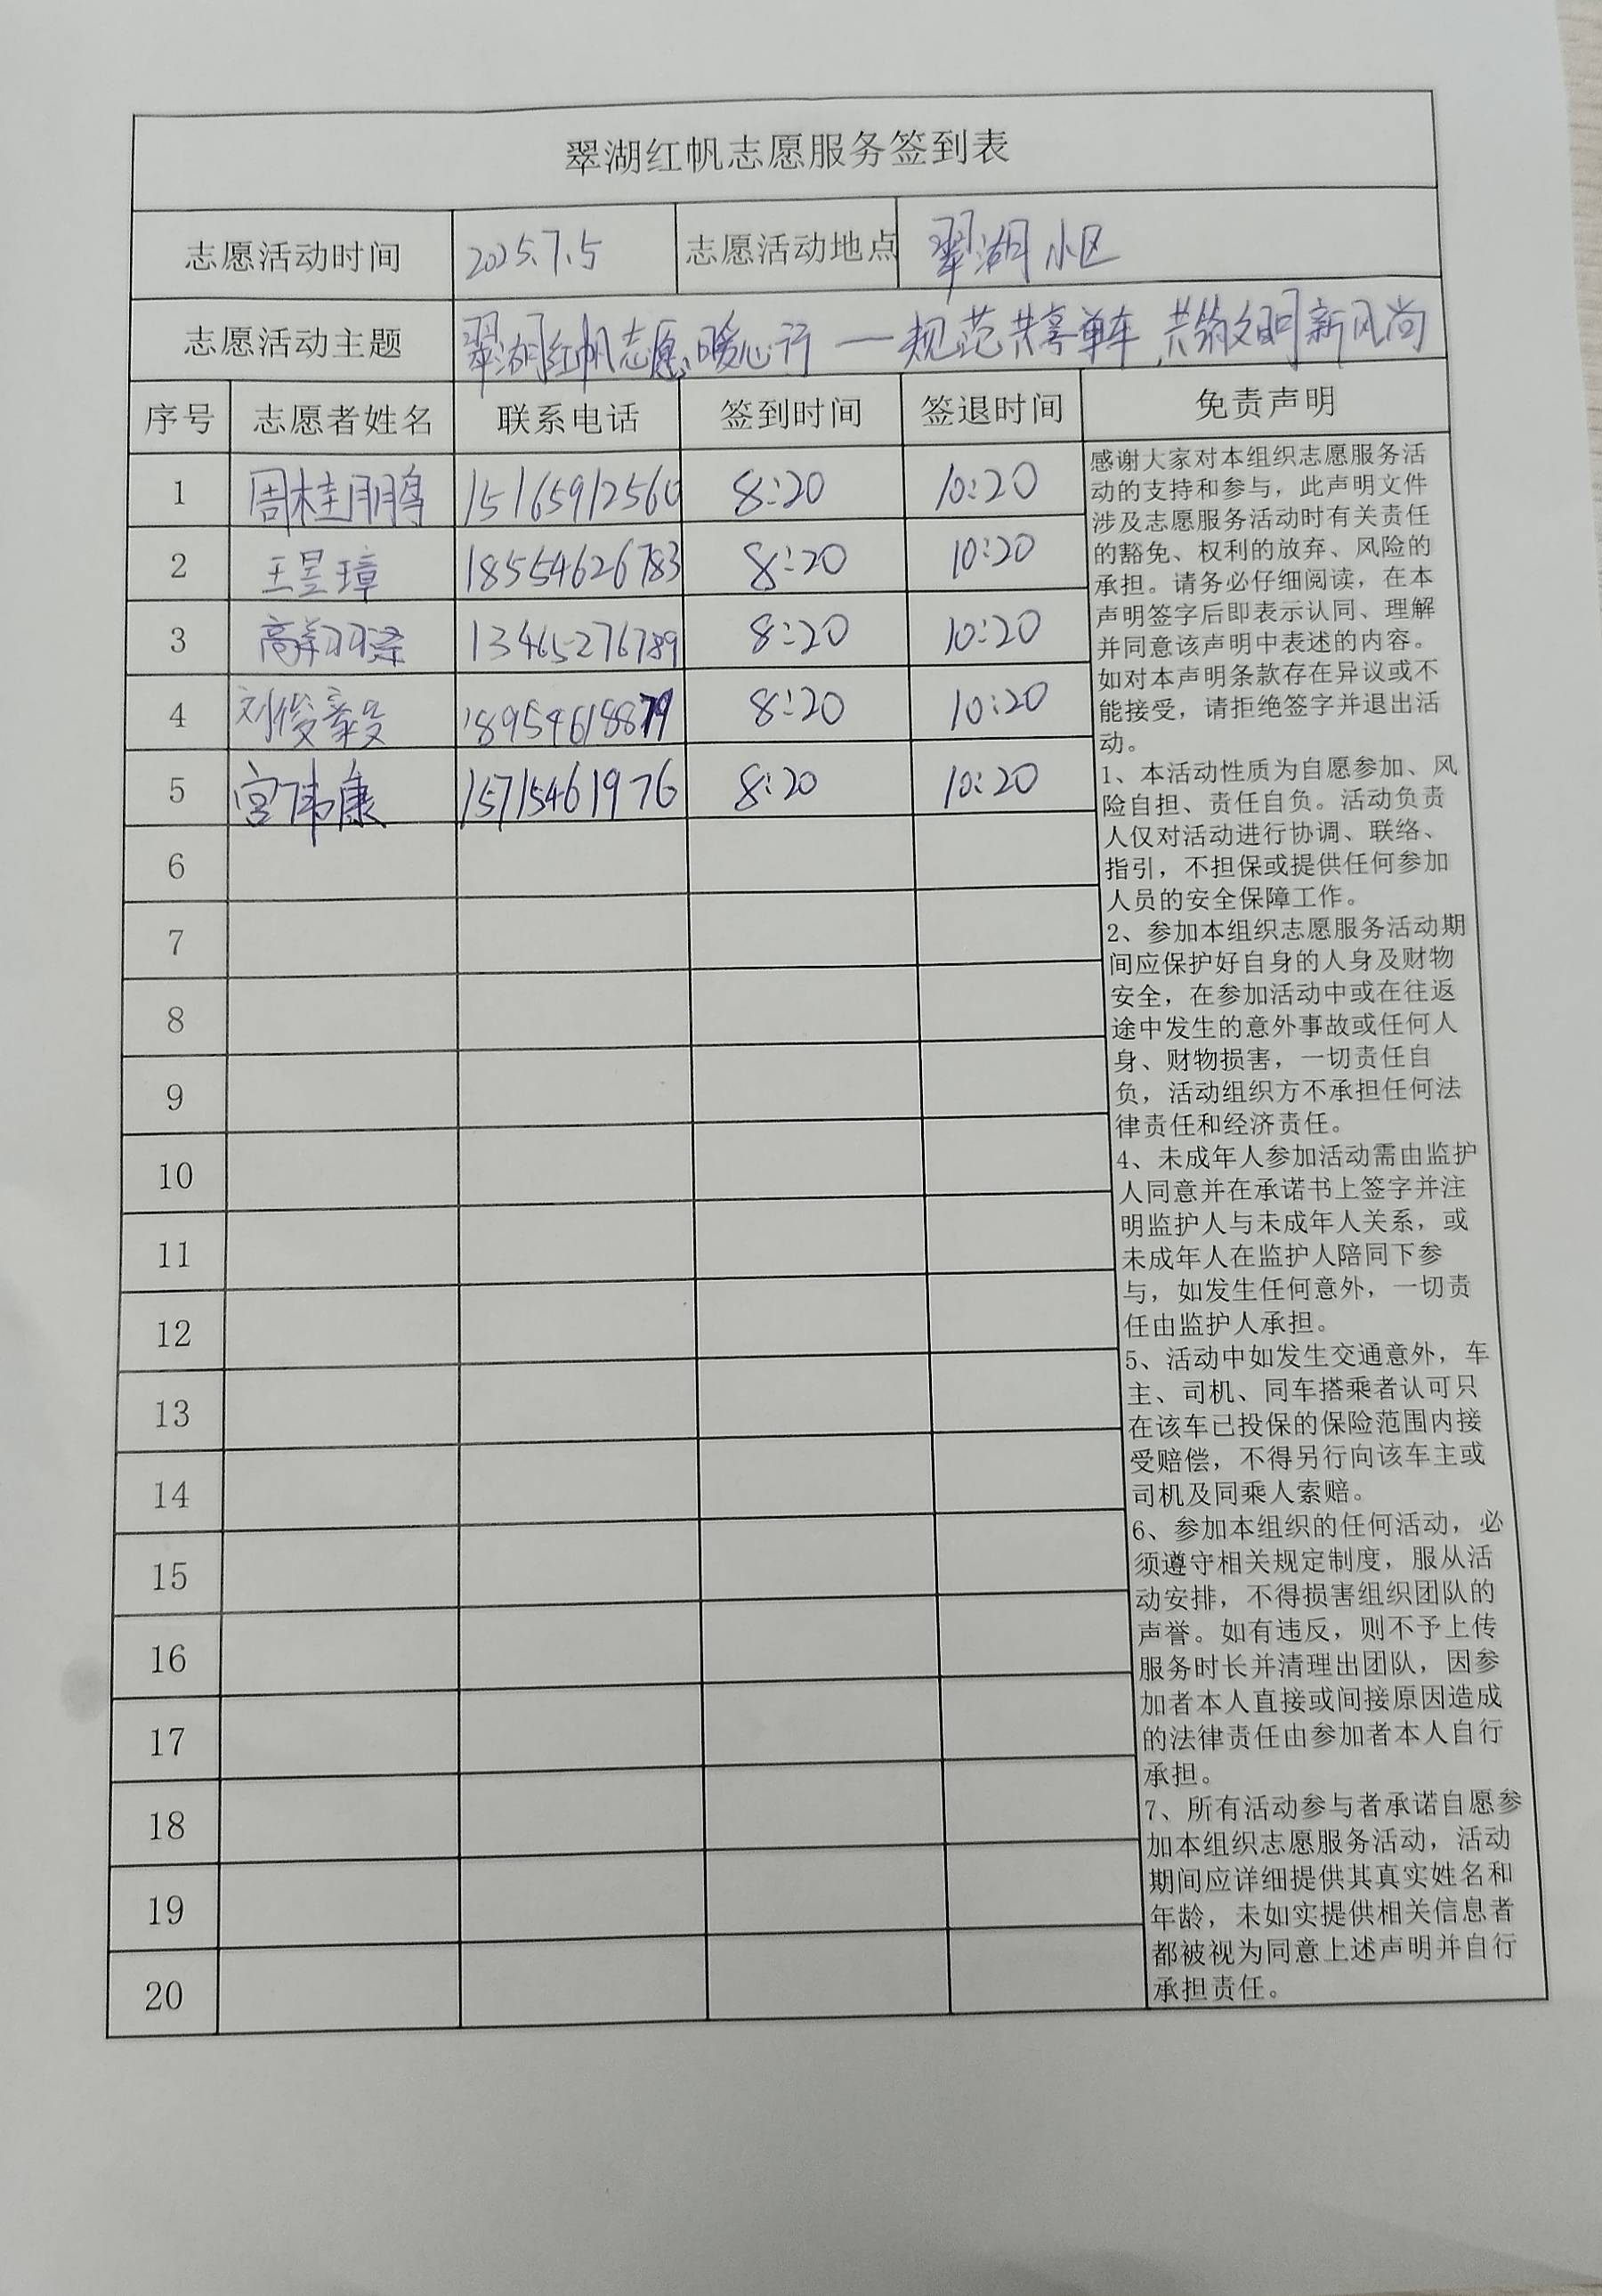 翠湖红帆志愿服务签到表
志愿活动时间 2025.7.5 志愿活动地点 翠湖小区
志愿活动主题 翠湖红帆志愿暖心行一规范共享单车,共筑文明新风尚
序号 志愿者姓名 联系电话 签到时间 签退时间 免责声明
1 周桂鹏 15165912560 8:20 10:20
2 王昱璋 18554626783 8:20 10:20
3 高 13465276789 8:20 10:20
4 刘俊毅 18954618879 8:20 10:20
5 宫伟康 15715461976 8:20 10:20
6
7
8
9
10
11
12
13
14
15
16
17
18
19
20
感谢大家对本组织志愿服务活
动的支持和参与,此声明文件
涉及志愿服务活动时有关责任
的豁免、权利的放弃、风险的
承担。请务必仔细阅读,在本
声明签字后即表示认同、理解
并同意该声明中表述的内容。
如对本声明条款存在异议或不
能接受,请拒绝签字并退出活
动。
1、本活动性质为自愿参加、风
险自担、责任自负。活动负责
人仅对活动进行协调、联络、
指引,不担保或提供任何参加
人员的安全保障工作。
2、参加本组织志愿服务活动期
间应保护好自身的人身及财物
安全,在参加活动中或在往返
途中发生的意外事故或任何人
身、财物损害,一切责任自
负,活动组织方不承担任何法
律责任和经济责任。
4、未成年人参加活动需由监护
人同意并在承诺书上签字并注
明监护人与未成年人关系,或
未成年人在监护人陪同下参
与,如发生任何意外,一切责
任由监护人承担。
5、活动中如发生交通意外,车
主、司机、同车搭乘者认可只
在该车已投保的保险范围内接
受赔偿,不得另行向该车主或
司机及同乘人索赔。
6、参加本组织的任何活动,必
须遵守相关规定制度,服从活
动安排,不得损害组织团队的
声誉。如有违反,则不予上传
服务时长并清理出团队,因参
加者本人直接或间接原因造成
的法律责任由参加者本人自行
承担。
7、所有活动参与者承诺自愿参
加本组织志愿服务活动,活动
期间应详细提供其真实姓名和
年龄,未如实提供相关信息者
都被视为同意上述声明并自行
承担责任。